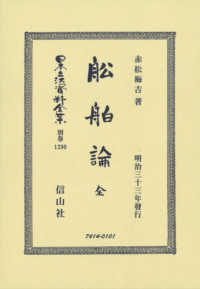 赤松梅吉著
舩舶論 全
明治三十三年發行
日本立法資料全集
別巻
1290
信山社
7614-0101